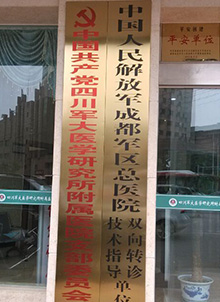 中国人民解放军成都军区总医院
双向转诊
技术指导单位
中国共产党四川军大医学研究所附属医院支部委员会
平安单位